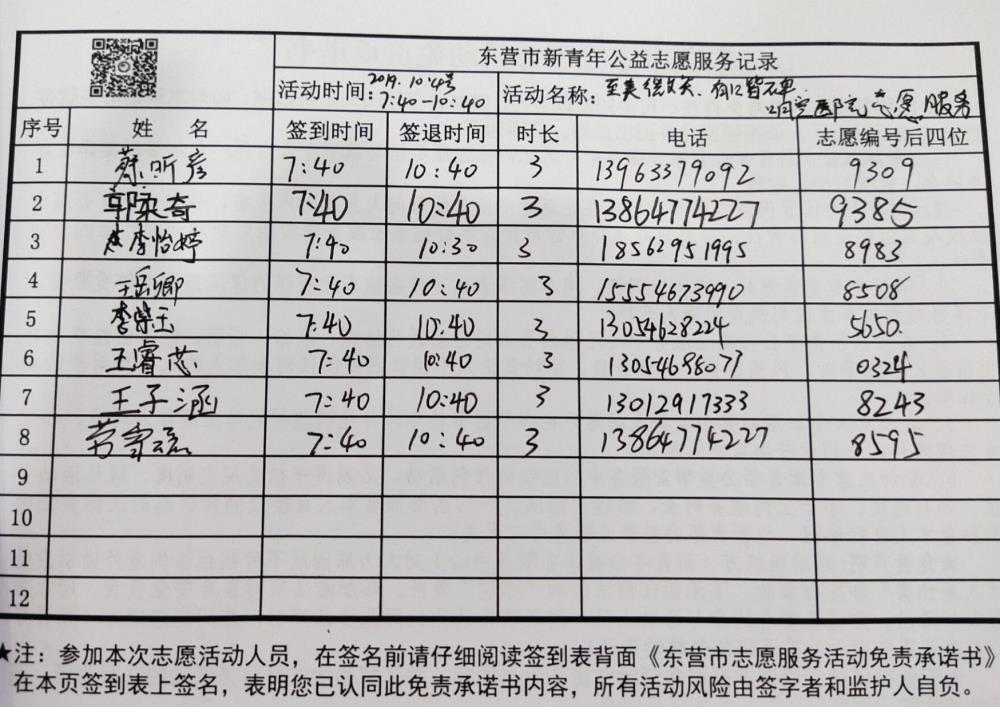 东营市新青年公益志愿服务记录
活动时间：2019.10.4号 7:40-10:40
活动名称：志愿服务
序号 姓名 签到时间 签退时间 时长 电话 志愿编号后四位
1 蔡昕彦 7:40 10:40 3 13963379092 9309
2 郭奕奇 7:40 10:40 3 13864774227 9385
3 李怡婷 7:40 10:30 3 18562951995 8983
4 王岳卿 7:40 10:40 3 15554673990 8508
5 李荣玉 7:40 10:40 3 13054628224 5650.
6 王睿芯 7:40 10:40 3 13054698077 0324
7 王子涵 7:40 10:40 3 13012917333 8243
8 7:40 10:40 3 13864774227 8595
9
10
11
12
★注：参加本次志愿活动人员，在签名前请仔细阅读签到表背面《东营市志愿服务活动免责承诺书》
在本页签到表上签名，表明您已认同此免责承诺书内容，所有活动风险由签字者和监护人自负。